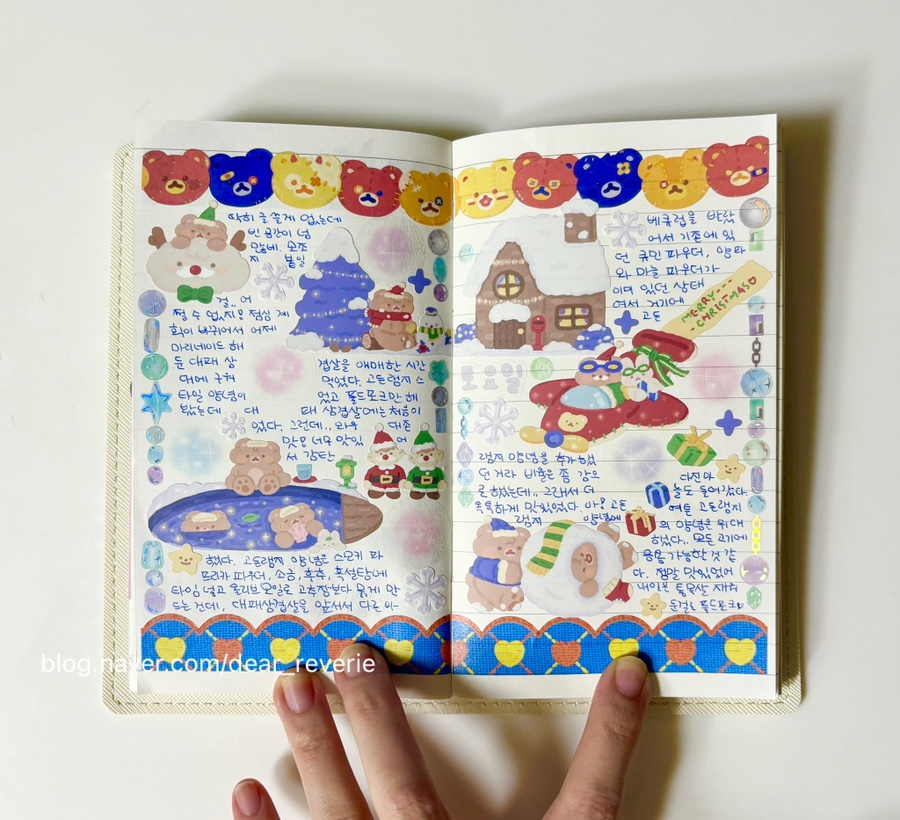 딱히 글 쓸게 없는데
빈 공간이 넘
맘에. 몬조
지 붙일
걸.. 어
쩔 수 없지! 점심 계
획이 바뀌어서 어제
마리네이드 해
둔 대패 삼
대에 구워
타임 양념이
밨는데 대
겹살을 애매한 시간
먹었다. 고든램지 소
었고 폴드포크만 해
패 삼겹살에는 처음이
었다. 그런데.. 와우 대존
맛! 너무 맛있 어
서 감탄
했다. 고든램지 양념은 스모키 파
프리카 파우더, 소금, 후추, 흑설탕에
타임 넣고 올리브오일로 고추장보다 묽게 만
드는 건데, 대패삼겹살을 앞서서 다른 바
베큐럽을 발랐
어서 기존에 있
던 큐민 파우더, 양파
와 마늘 파우더가
이며 있던 상태
여서 거기에
고든
MERRY---
-CHRISTMAS♡
토요일
램지 양념을 추가 했
던 거라 비율은 좀 감으
로 했는데.. 그래서 더
톡톡하게 맛있었다. 아! 고든
램지 양념에
다진 마
늘도 들어갔다.
여튼 고든램지
의 양념은 위대
하였다.. 모든 고기에
용용 가능할 것 같
다. 정말 맛있었어
내일은 통목살 재워
둔걸로 폴드포크!
blog.naver.com/dear_reverie